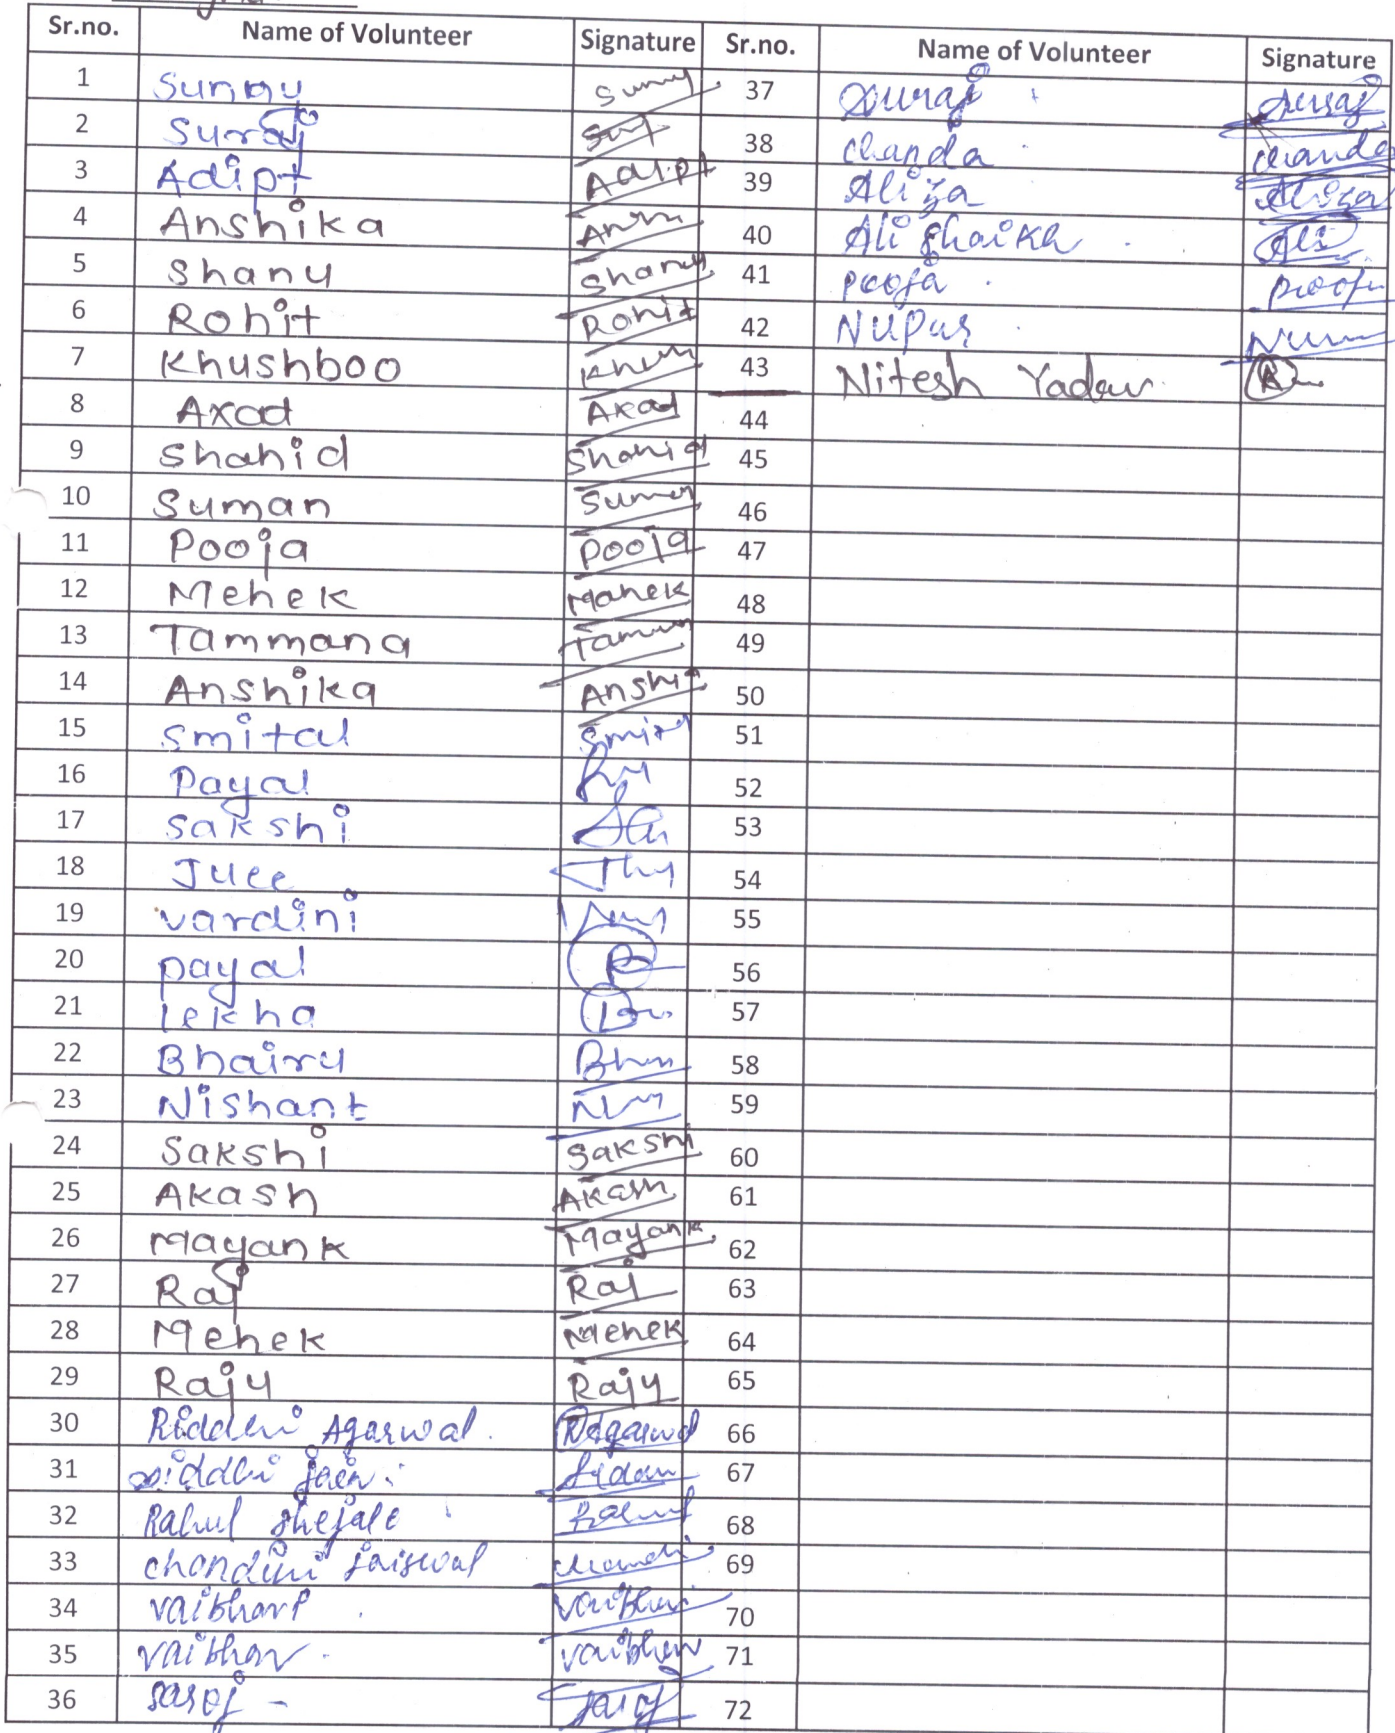 Sr.no. Name of Volunteer Signature Sr.no. Name of Volunteer Signature
1 Sunny Sunny 37 Suraj Suraj
2 Suraj Suj 38 chanda chanda
3 Adipt Adipt 39 Aliza Aliza
4 Anshika Ansh 40 Ali Shaikh Ali
5 Shanu Shanu 41 pooja pooja
6 Rohit Rohit 42 Nupur
7 Khushboo Khush 43 Nitesh Yadav
8 Axad Axad 44
9 Shahid Shahid 45
10 Suman Suman 46
11 Pooja Pooja 47
12 Mehek Mahek 48
13 Tammana Tamm 49
14 Anshika Anshi 50
15 Smital Smit 51
16 Payal 52
17 Sakshi 53
18 Juee 54
19 vardini 55
20 payal 56
21 lekha 57
22 Bhairu 58
23 Nishant 59
24 Sakshi Sakshi 60
25 Akash Akash 61
26 Mayank Mayank 62
27 Raj Raj 63
28 Mehek Mehek 64
29 Raju Raju 65
30 Riddhi Agarwal RAgarwal 66
31 siddhi jain 67
32 Rahul Shejale Rahul 68
33 chandini jaiswal 69
34 vaibhavi vaibhavi 70
35 vaibhav vaibhav 71
36 saroj saroj 72